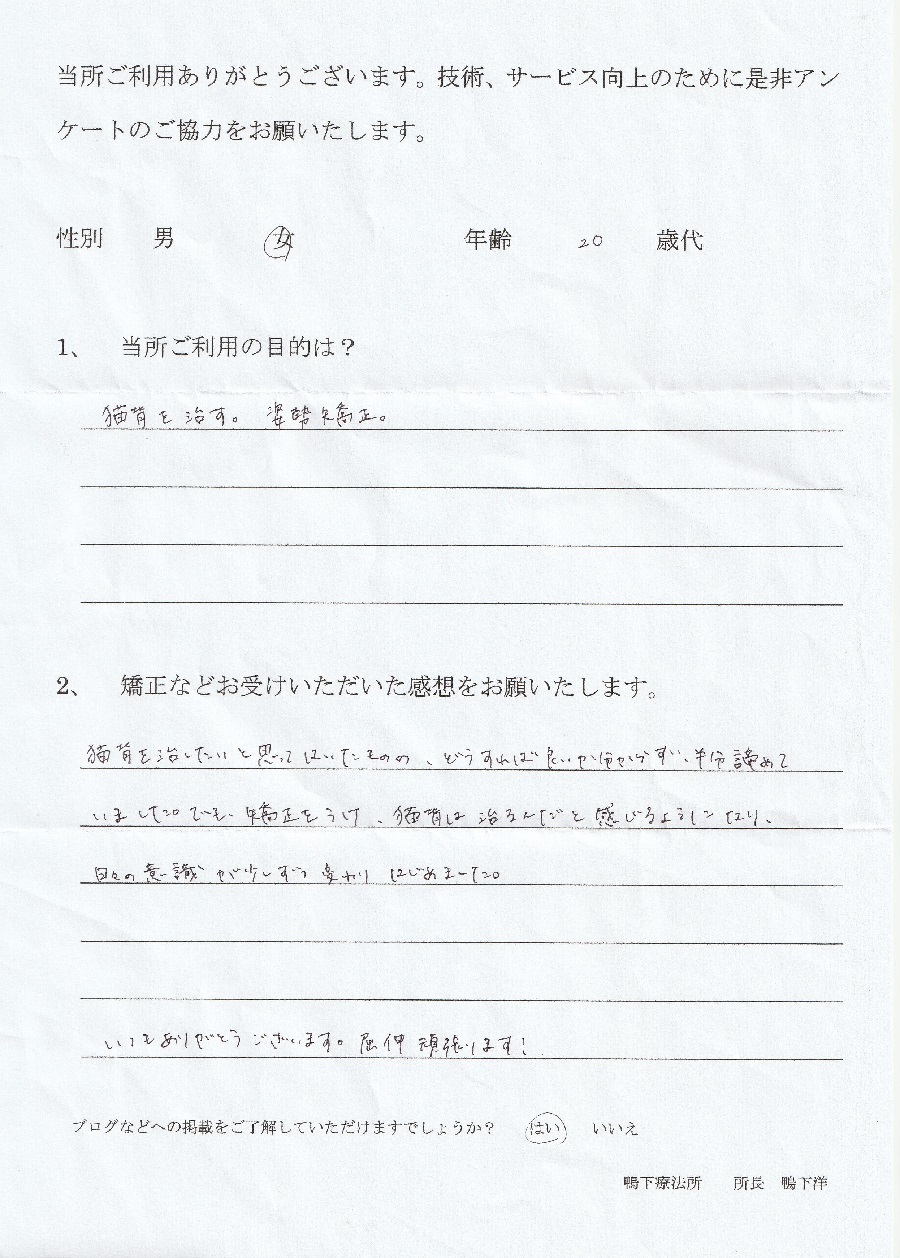 当所ご利用ありがとうございます。技術、サービス向上のために是非アン
ケートのご協力をお願いたします。
性別 男 女 年齢 20 歳代
1、 当所ご利用の目的は？
猫背を治す。姿勢矯正。
2、 矯正などお受けいただいた感想をお願いたします。
猫背を治したいと思ってはいたものの、どうすれば良いか分からず、半分諦めて
いました。でも、矯正をうけ、猫背は治るんだと感じるようになり、
日々の意識が少しずつ変わりはじめました。
いつもありがとうございます。屈伸頑張ります！
ブログなどへの掲載をご了解していただけますでしょうか？ はい いいえ
鴨下療法所 所長 鴨下洋